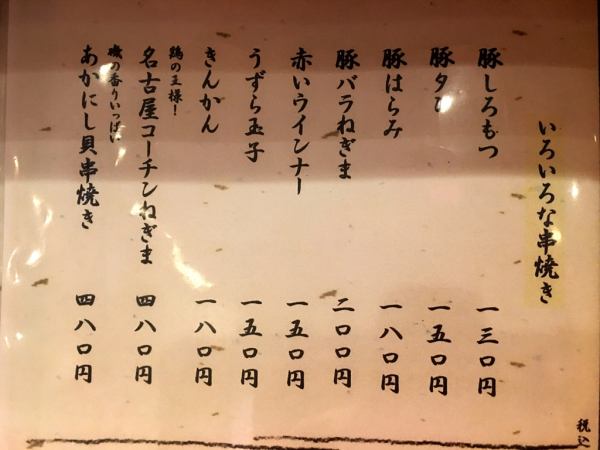 いろいろな串焼き
豚しろもつ 一三〇円
豚タン 一五〇円
豚はらみ 一八〇円
豚バラねぎま 二〇〇円
赤いウインナー 一五〇円
うずら玉子 一五〇円
きんかん 一八〇円
鶏の王様!
名古屋コーチンねぎま 四八〇円
磯の香りいっぱい
あかにし貝串焼き 四八〇円
税込